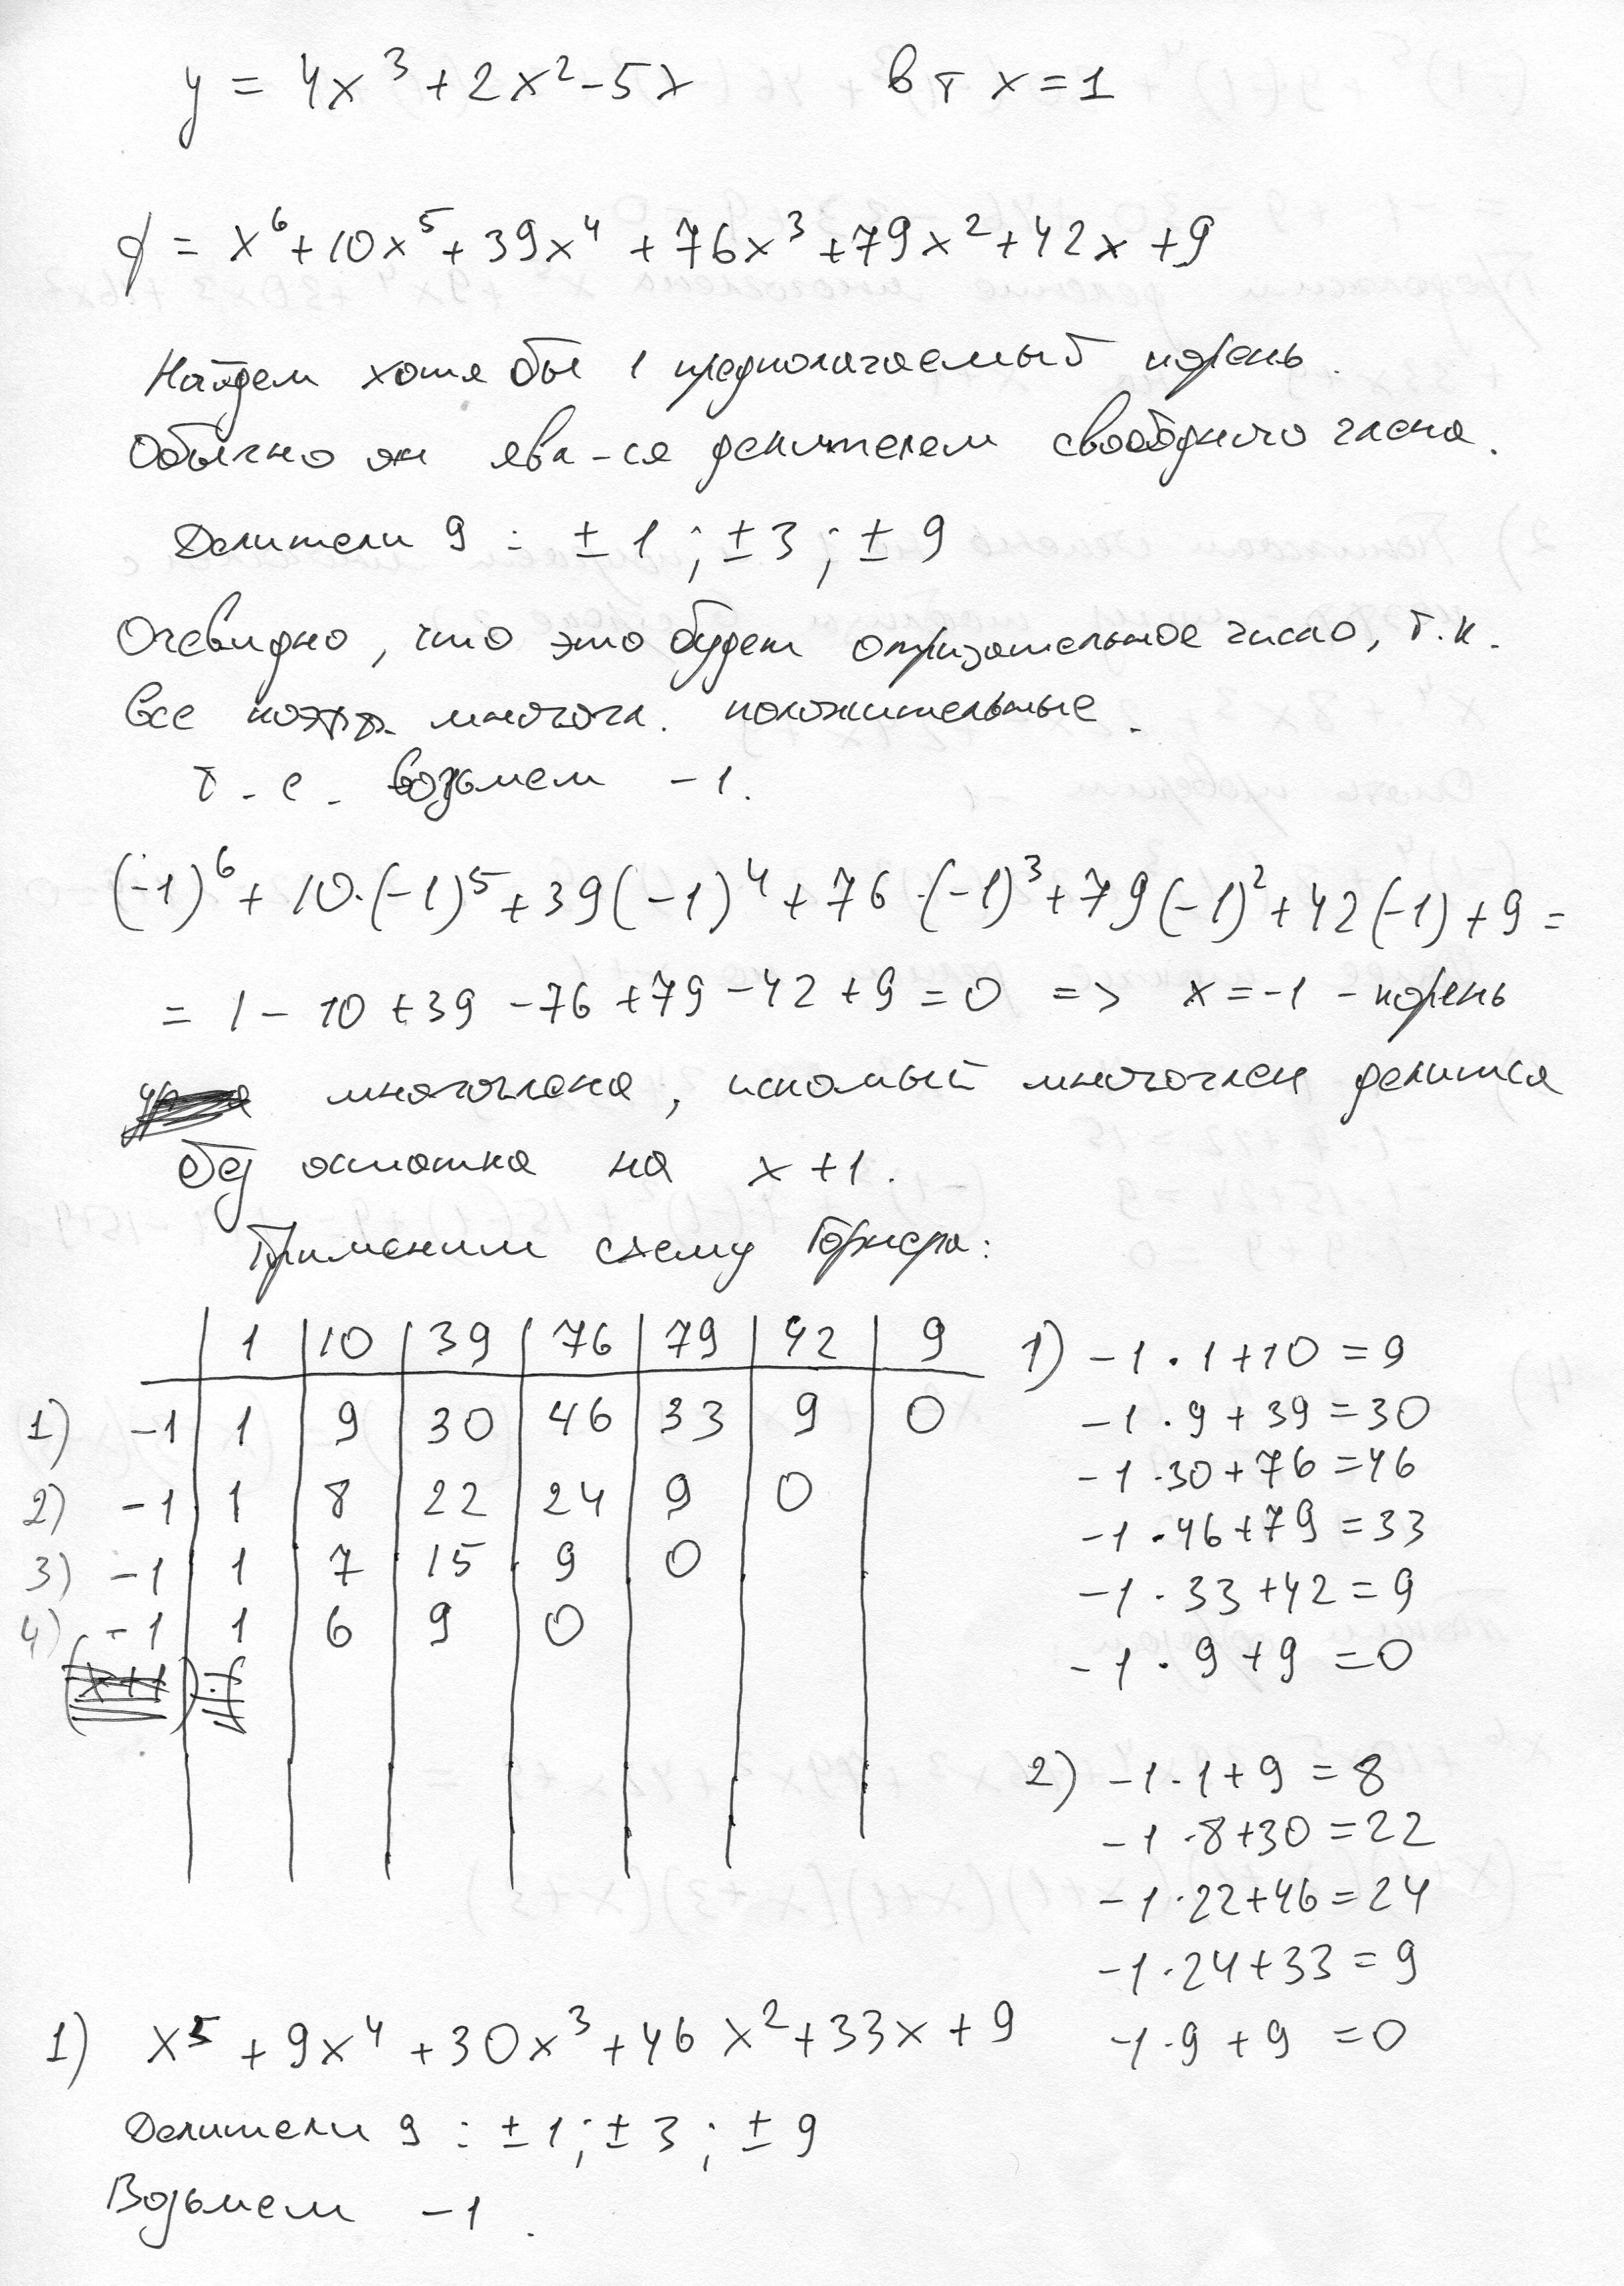 y = 4x³ + 2x² - 5x в т x = 1
f = x⁶ + 10x⁵ + 39x⁴ + 76x³ + 79x² + 42x + 9
Найдем хотя бы 1 предполагаемый корень.
Обычно он явл-ся делителем свободного члена.
Делители 9 : ± 1 ; ± 3 ; ± 9
Очевидно, что это будет отрицательное число, т.к.
все коэфф. многочл. положительные.
т.е. возьмем -1.
(-1)⁶ + 10·(-1)⁵ + 39(-1)⁴ + 76·(-1)³ + 79(-1)² + 42(-1) + 9 =
= 1 - 10 + 39 - 76 + 79 - 42 + 9 = 0 => x = -1 - корень
многочлена, искомый многочлен делится
без остатка на x + 1.
Применим схему Горнера:
1 | 10 | 39 | 76 | 79 | 42 | 9
1) -1 | 1 | 9 | 30 | 46 | 33 | 9 | 0
2) -1 | 1 | 8 | 22 | 24 | 9 | 0
3) -1 | 1 | 7 | 15 | 9 | 0
4) -1 | 1 | 6 | 9 | 0
1) -1 · 1 + 10 = 9
-1 · 9 + 39 = 30
-1 · 30 + 76 = 46
-1 · 46 + 79 = 33
-1 · 33 + 42 = 9
-1 · 9 + 9 = 0
2) -1 · 1 + 9 = 8
-1 · 8 + 30 = 22
-1 · 22 + 46 = 24
-1 · 24 + 33 = 9
-1 · 9 + 9 = 0
1) x⁵ + 9x⁴ + 30x³ + 46x² + 33x + 9
Делители 9 : ± 1 ; ± 3 ; ± 9
Возьмем -1.